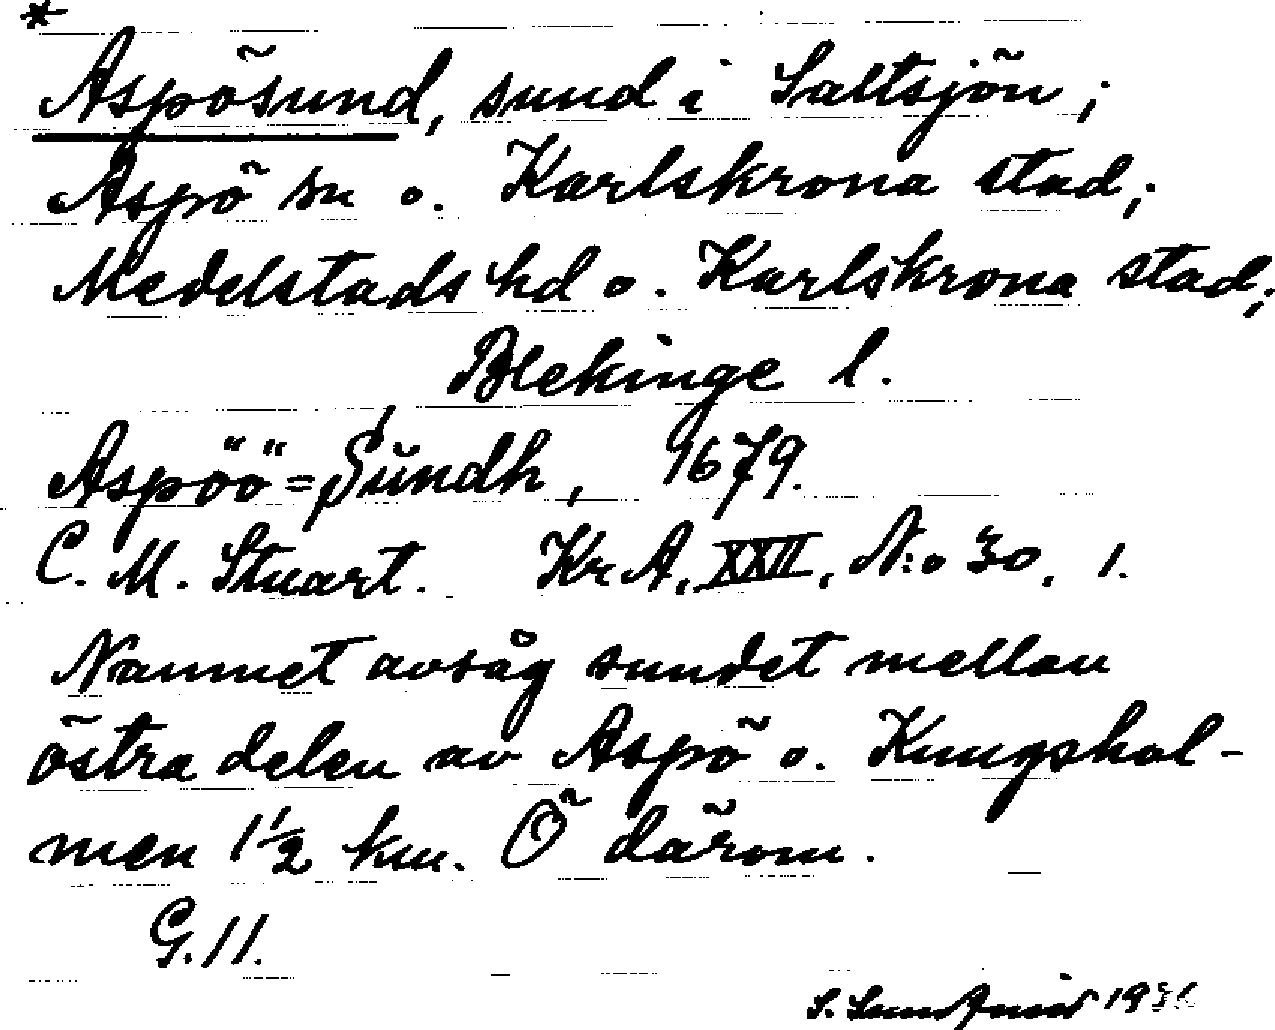 *
Aspösund, sund i Saltsjön;
Aspö sn o. Karlskrona stad;
Medelstads hd o. Karlskrona stad;
Blekinge l.
Aspöö=Sŭndh, 1679.
C. M. Stuart. Kr A, XXII, N:o 30, 1.
Namnet avsåg sundet mellan
östra delen av Aspö o. Kungshol-
men 1½ km. Ö därom.
G. 11.
S.